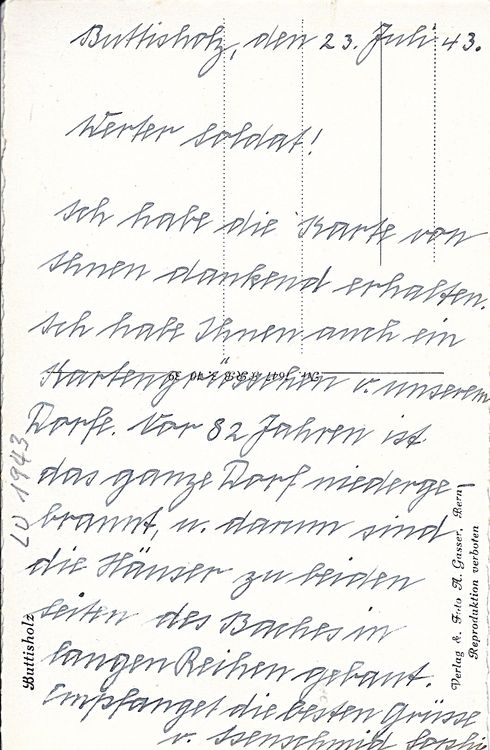 Buttisholz, den 23. Juli 43.
Werter Soldat!
Ich habe die Karte von
Ihnen dankend erhalten.
Ich habe Ihnen auch ein
Kartengrüsschen v. unserem
Dorfe. Vor 82 Jahren ist
das ganze Dorf niederge-
brannt, u. darum sind
die Häuser zu beiden
seiten des Baches in
langen Reihen gebaut.
Empfanget die besten Grüsse
v. Isenschmid
LU 1943
Buttisholz
Verlag & Foto A. Gasser, Bern
Reproduktion verboten